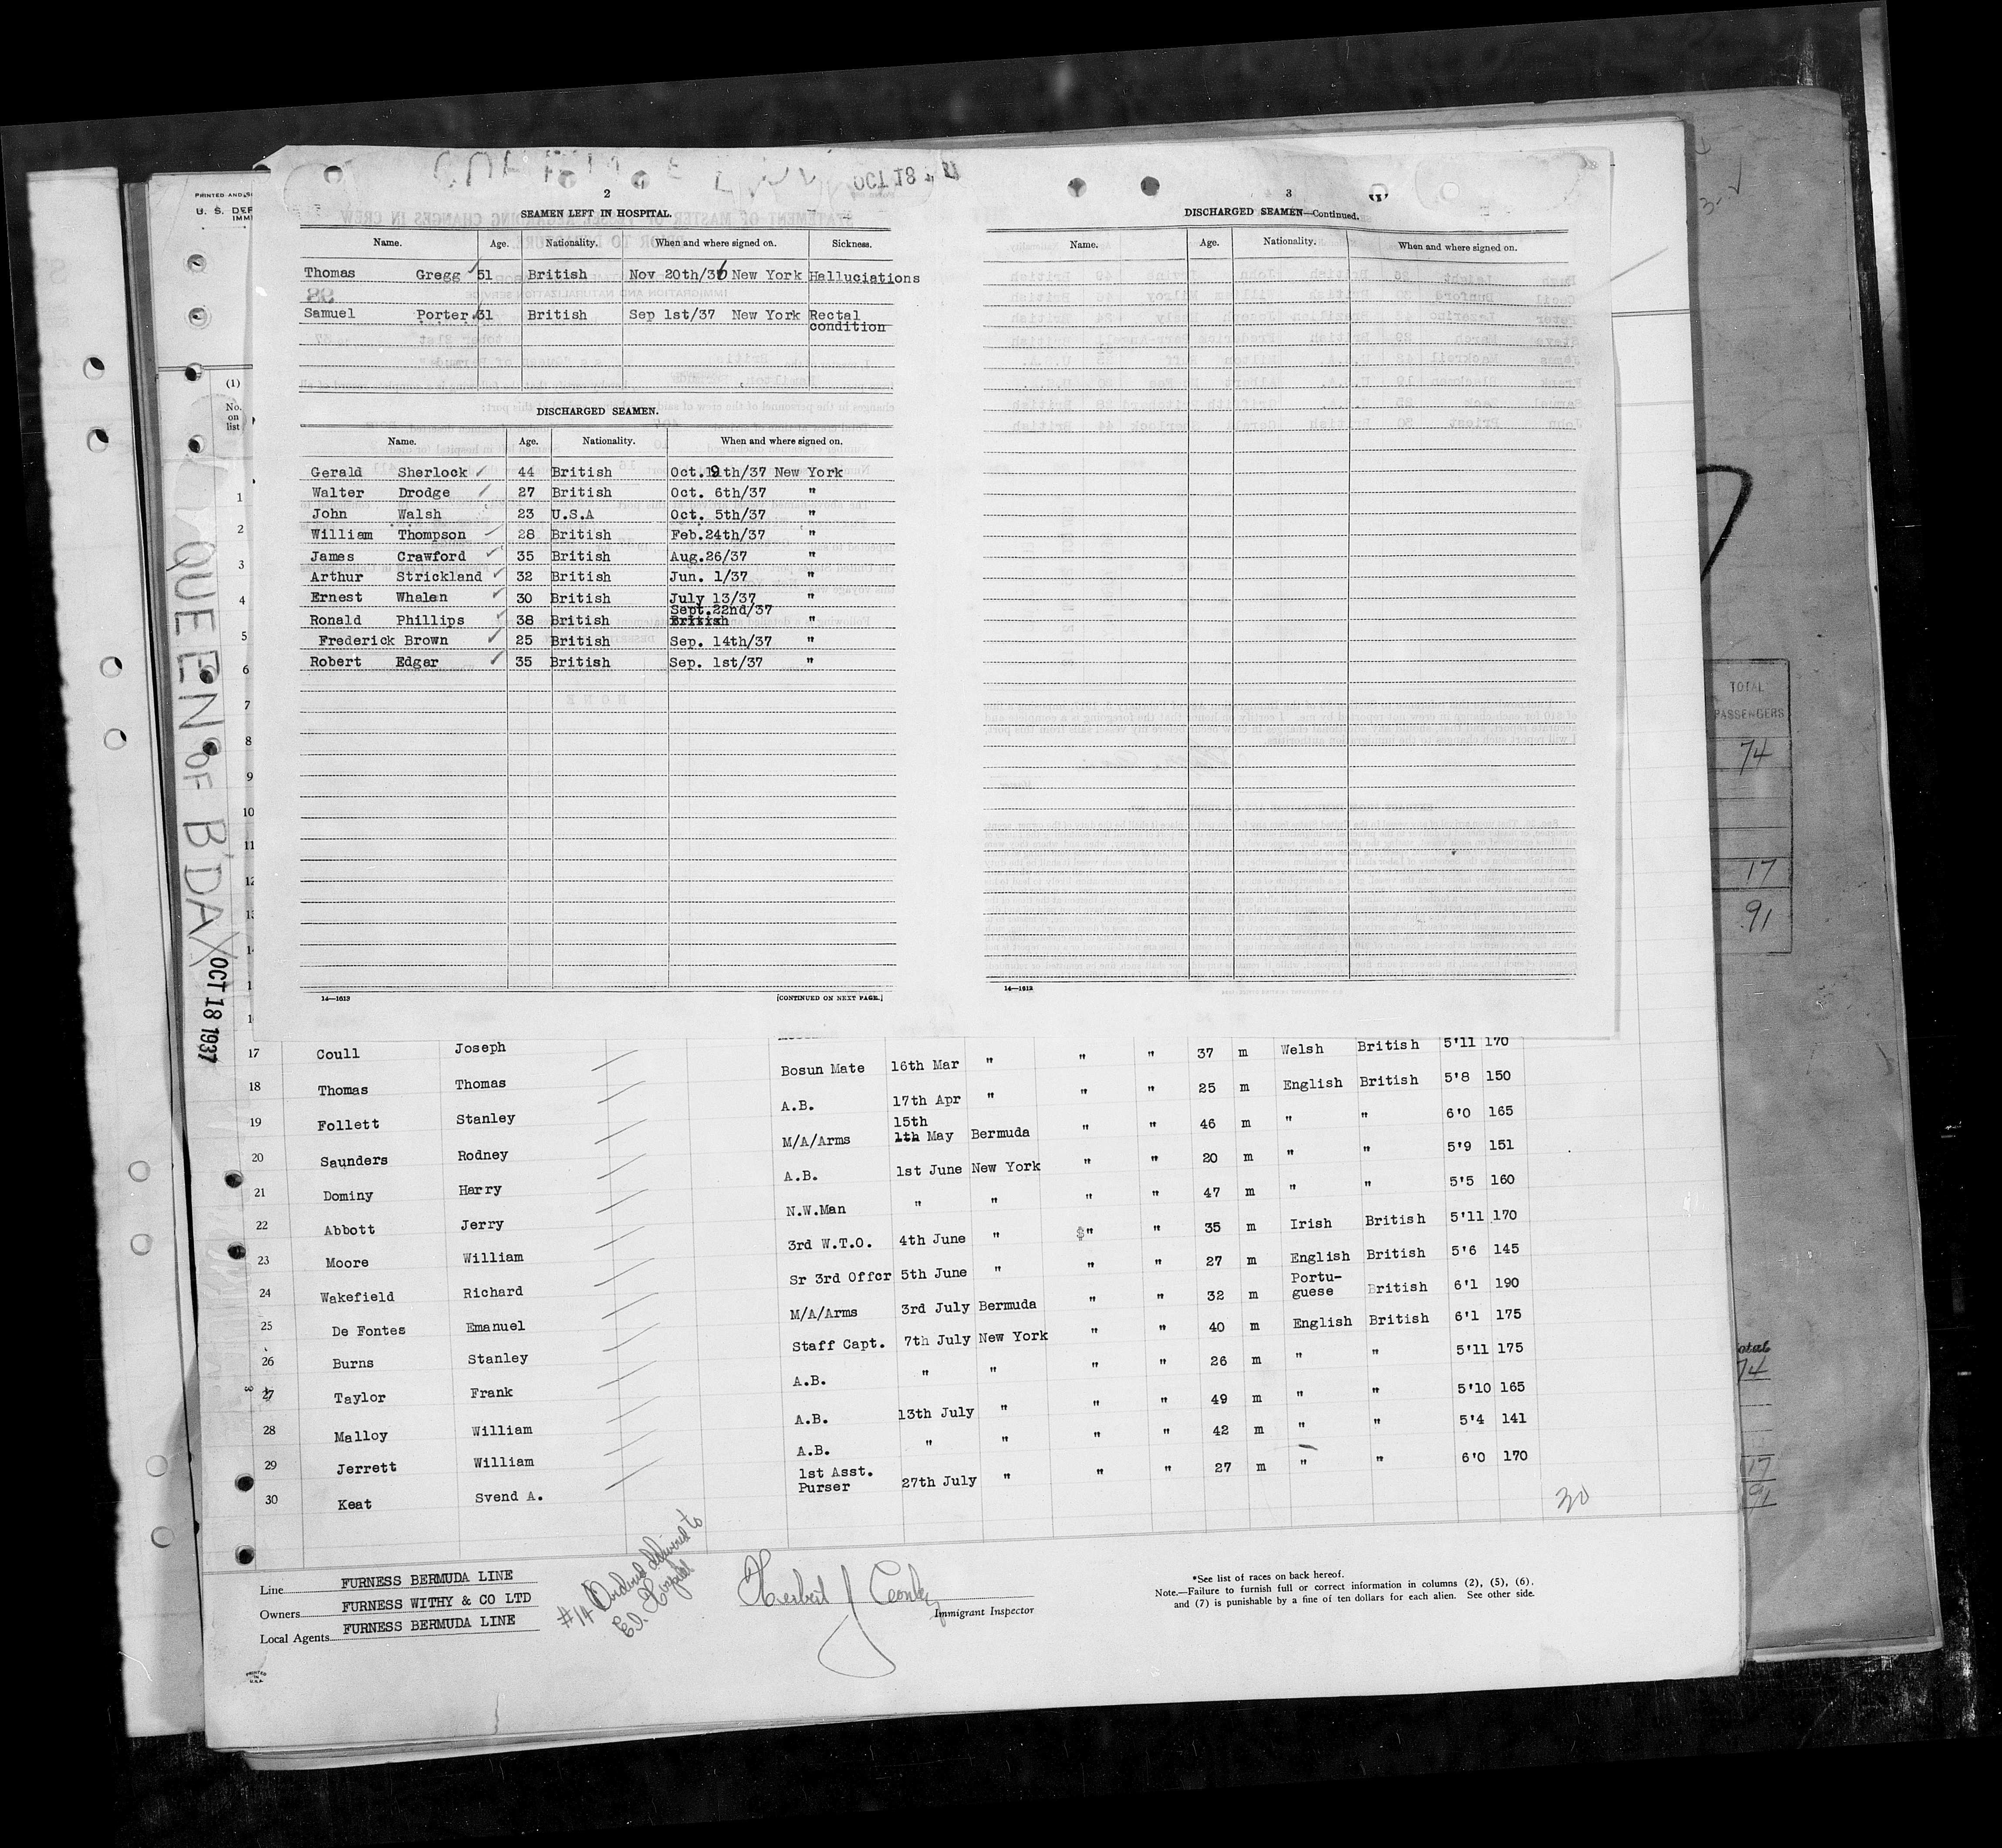 OCT 18
2
SEAMEN LEFT IN HOSPITAL.
Name. Age. Nationality. When and where signed on. Sickness.
Thomas Gregg 51 British Nov 20th/36 New York Halluciations
Samuel Porter 31 British Sep 1st/37 New York Rectal
condition
DISCHARGED SEAMEN.
Name. Age. Nationality. When and where signed on.
Gerald Sherlock 44 British Oct.19th/37 New York
Walter Drodge 27 British Oct. 6th/37 "
John Walsh 23 U.S.A Oct. 5th/37 "
William Thompson 28 British Feb.24th/37 "
James Crawford 35 British Aug.26/37 "
Arthur Strickland 32 British Jun. 1/37 "
Ernest Whalen 30 British July 13/37 "
Sept.22nd/37
Ronald Phillips 38 British British "
Frederick Brown 25 British Sep. 14th/37 "
Robert Edgar 35 British Sep. 1st/37 "
14—1613
[CONTINUED ON NEXT PAGE.]
3
DISCHARGED SEAMEN—Continued.
Name. Age. Nationality. When and where signed on.
14—1613
PRINTED AND
U. S. DEP
IMMI
(1)
No.
on
list
1
2
3
4
5
6
7
8
9
10
11
12
13
QUEEN OF B'DA X
OCT 18 1937
17 Coull Joseph Bosun Mate 16th Mar " " " 37 m Welsh British 5'11 170
18 Thomas Thomas A.B. 17th Apr " " " 25 m English British 5'8 150
19 Follett Stanley M/A/Arms 15th 1th May Bermuda " " 46 m " " 6'0 165
20 Saunders Rodney A.B. 1st June New York " " 20 m " " 5'9 151
21 Dominy Harry N.W.Man " " " " 47 m " " 5'5 160
22 Abbott Jerry 3rd W.T.O. 4th June " $" " 35 m Irish British 5'11 170
23 Moore William Sr 3rd Offcr 5th June " " " 27 m English British 5'6 145
24 Wakefield Richard M/A/Arms 3rd July Bermuda " " 32 m Portu-guese British 6'1 190
25 De Fontes Emanuel Staff Capt. 7th July New York " " 40 m English British 6'1 175
26 Burns Stanley A.B. " " " " 26 m " " 5'11 175
27 Taylor Frank A.B. 13th July " " " 49 m " " 5'10 165
28 Malloy William A.B. " " " " 42 m " " 5'4 141
29 Jerrett William 1st Asst. Purser 27th July " " " 27 m " " 6'0 170
30 Keat Svend A.
30
Line FURNESS BERMUDA LINE
Owners FURNESS WITHY & CO LTD
Local Agents FURNESS BERMUDA LINE
#14 Ordered delivered to
E.I. Hospital
Immigrant Inspector
*See list of races on back hereof.
Note.—Failure to furnish full or correct information in columns (2), (5), (6).
and (7) is punishable by a fine of ten dollars for each alien. See other side.
PRINTED
IN
U.S.A.
TOTAL
PASSENGERS
74
17
91
otal
74
17
91